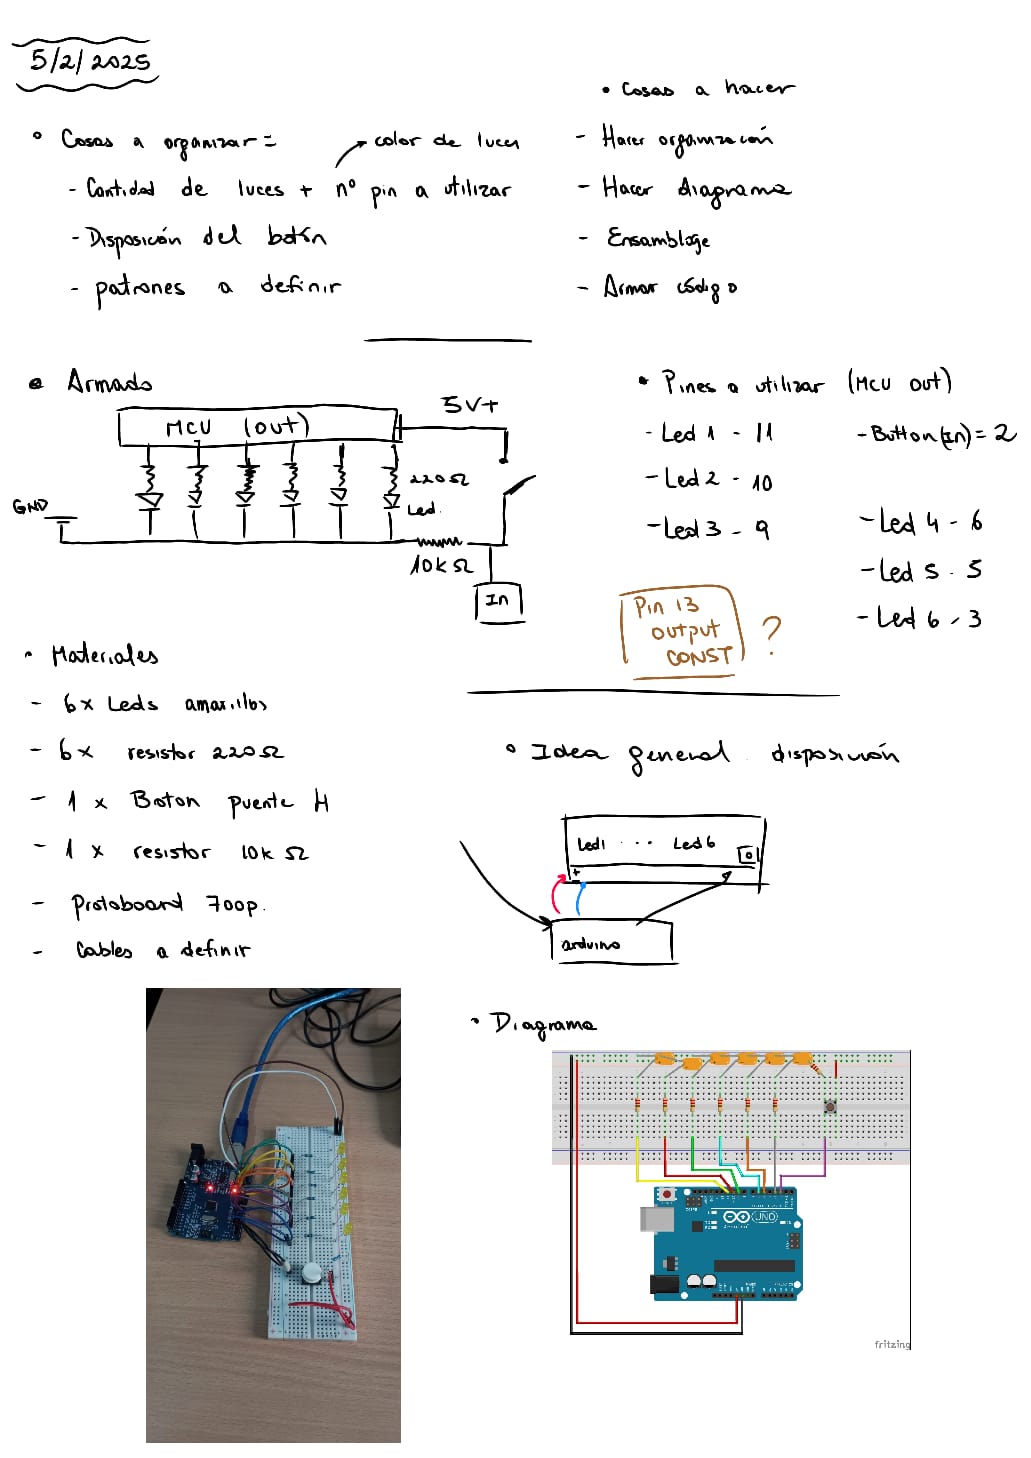 5/2/2025
° Cosas a organizar =
color de luces
- Cantidad de luces + n° pin a utilizar
- Disposición del botón
- patrones a definir
• Cosas a hacer
- Hacer organización
- Hacer diagrama
- Ensamblaje
- Armar código
• Armado
5V+
MCU (out)
220Ω
Led.
GND
10KΩ
In
• Pines a utilizar (MCU out)
- Led 1 - 11
- Led 2 - 10
- Led 3 - 9
- Button (In) = 2
- Led 4 - 6
- Led 5 - 5
- Led 6 - 3
Pin 13
output
CONST
?
• Materiales
- 6x Leds amarillos
- 6x resistor 220Ω
- 1 x Boton puente H
- 1 x resistor 10k Ω
- Protoboard 700p.
- Cables a definir
° Idea general disposición
Led1 ... Led6
+
-
arduino
• Diagrama
UNO
fritzing